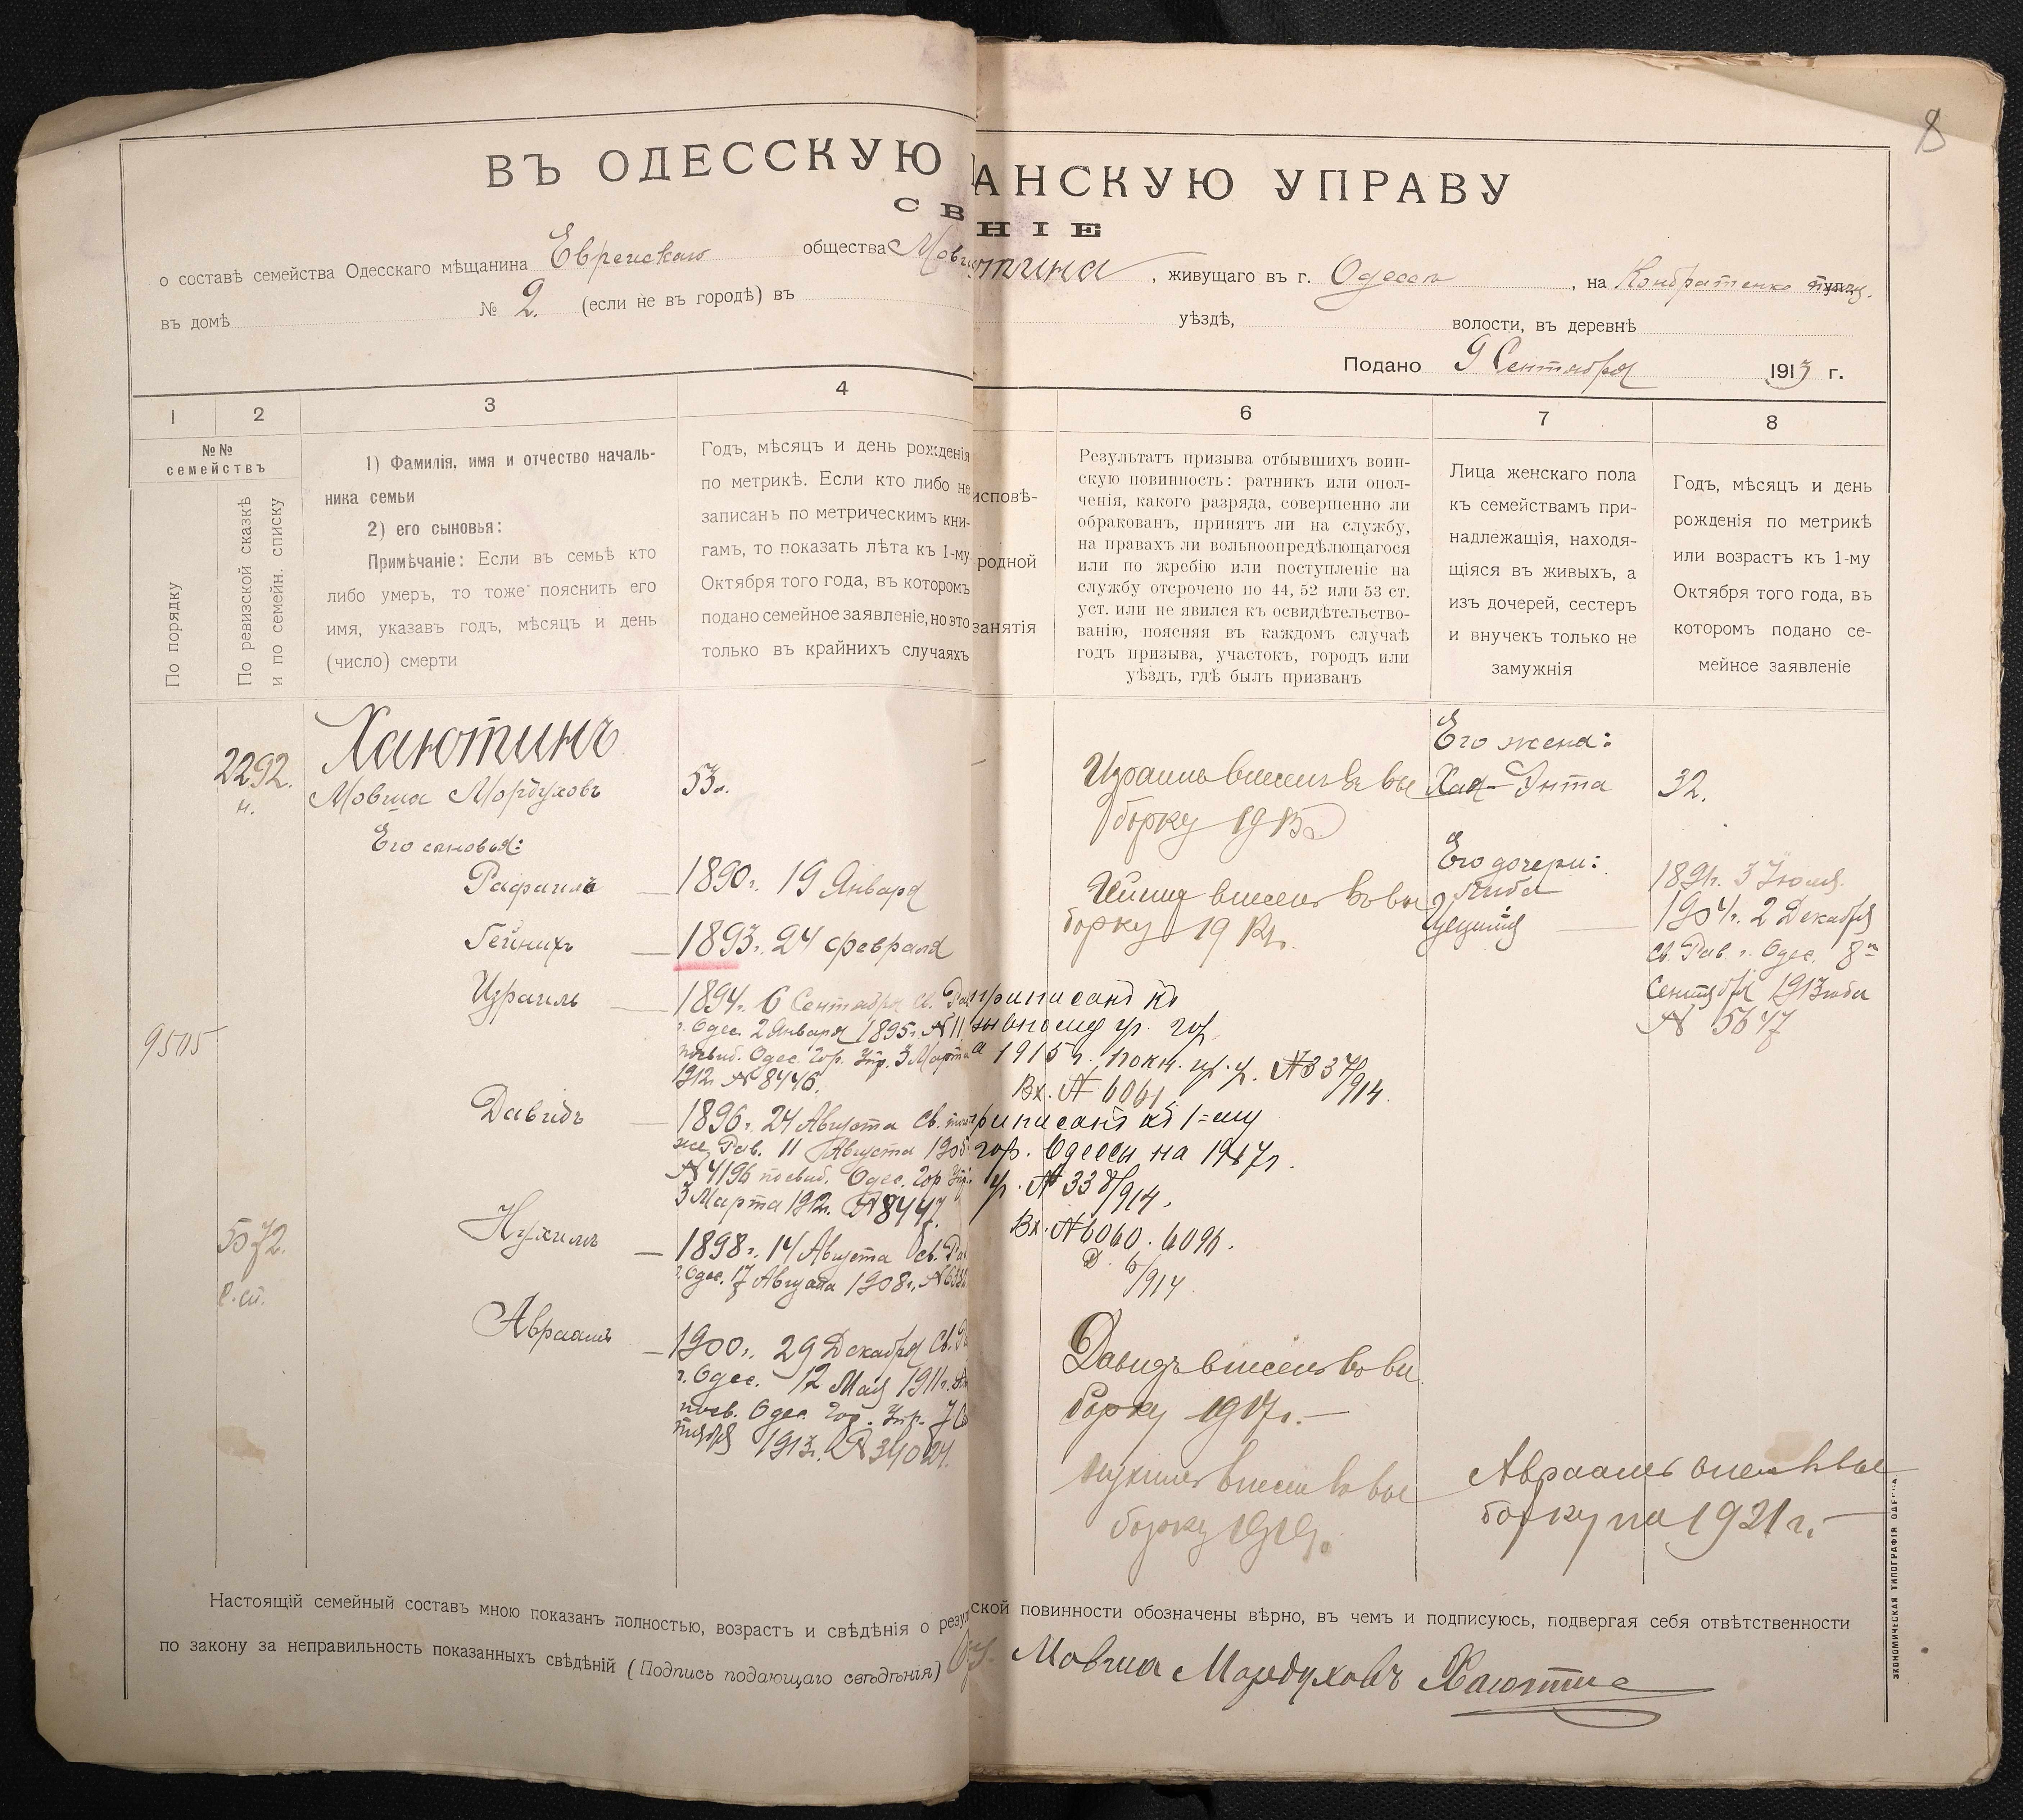 8
ВЪ ОДЕССКУЮ
АНСКУЮ УПРАВУ
СВ
НІЕ
о составѣ семейства Одесскаго мѣщанина Еврейскаго общества
тина, живущаго въ г. Одессѣ, на Кондратенко
въ домѣ № 2. (если не въ городѣ) въ
уѣздѣ, волости, въ деревнѣ
Подано 9 Сентября 1913 г.
1 2 3 4
6 7 8
№№
семействъ
По порядку
По ревизской сказкѣ
и по семейн. списку
1) Фамилія, имя и отчество началь-
ника семьи
2) его сыновья:
Примѣчаніе: Если въ семьѣ кто
либо умеръ, то тоже пояснить его
имя, указавъ годъ, мѣсяцъ и день
(число) смерти
Годъ, мѣсяцъ и день рожденія
по метрикѣ. Если кто либо не
записанъ по метрическимъ кни-
гамъ, то показать лѣта къ 1-му
Октября того года, въ которомъ
подано семейное заявленіе, но это
только въ крайнихъ случаяхъ
исповѣ-
родной
занятія
Результатъ призыва отбывшихъ воин-
скую повинность: ратникъ или опол-
ченія, какого разряда, совершенно ли
обракованъ, принятъ ли на службу,
на правахъ ли вольноопредѣлющагося
или по жребію или поступленіе на
службу отсрочено по 44, 52 или 53 ст.
уст. или не явился къ освидѣтельство-
ванію, поясняя въ каждомъ случаѣ
годъ призыва, участокъ, городъ или
уѣздъ, гдѣ былъ призванъ
Лица женскаго пола
къ семействамъ при-
надлежащія, находя-
щіяся въ живыхъ, а
изъ дочерей, сестеръ
и внучекъ только не
замужнія
Годъ, мѣсяцъ и день
рожденія по метрикѣ
или возрастъ къ 1-му
Октября того года, въ
которомъ подано се-
мейное заявленіе
2292.
н.
Хаютинъ
Мовша Мордуховъ
53 л.
Его сыновья:
Рафаилъ — 1890 г. 19 Января
Гейнихъ — 1893 г. 24 февраля
Израиль — 1894 г. 6 Сентября св. Рав
г. Одес. 2 Января 1895 г. № 11
Одес. Гор. Упр. 3 Марта
1912 г. № 8446.
9505
Давидъ — 1896 г. 24 Августа св.
же Рав. 11 Августа 1905
№ 4196 Одес. Гор Упр.
3 Марта 1912 г. № 8447.
5072.
Нухимъ — 1898 г. 14 Августа св. Рав
г. Одес. 17 Августа 1908 г. №
Авраамъ — 1900 г. 29 Декабря св. Р
г. Одес. 12 Мая 1911 г. №
Одес. Гор. Упр. 7 Се
тября 1913 г. № 34024.
Израиль внесенъ въ вы
борку 1915 г.
внесенъ въ вы
борку 19
приписанъ къ
уч. гор.
а 1915 г. № 337/914.
Вх. № 6061
приписанъ къ 1=му
гор. Одессы на 1917 г.
№ 338/914.
Вх. № 6060. 6096.
/914
Давидъ внесенъ въ вы
борку 1917 г. —
Нухимъ внесенъ въ вы
борку 1919 г.
Авраамъ внесенъ въ вы
борку на 1921 г. —
Его жена:
Хая-Энта 32.
Его дочери:
Цецилія —
3 Іюля
1904 г. 2 Декабря
св. Рав. г. Одес. 8
Сентября 1913 года
№ 5647
Настоящій семейный составъ мною показанъ полностью, возрастъ и свѣдѣнія о резул
ской повинности обозначены вѣрно, въ чемъ и подписуюсь, подвергая себя отвѣтственности
по закону за неправильность показанныхъ свѣдѣній (Подпись подающаго свѣдѣнія)
Мовша Мордуховъ Хаютинъ
ЭКОНОМИЧЕСКАЯ ТИПОГРАФІЯ ОДЕССА